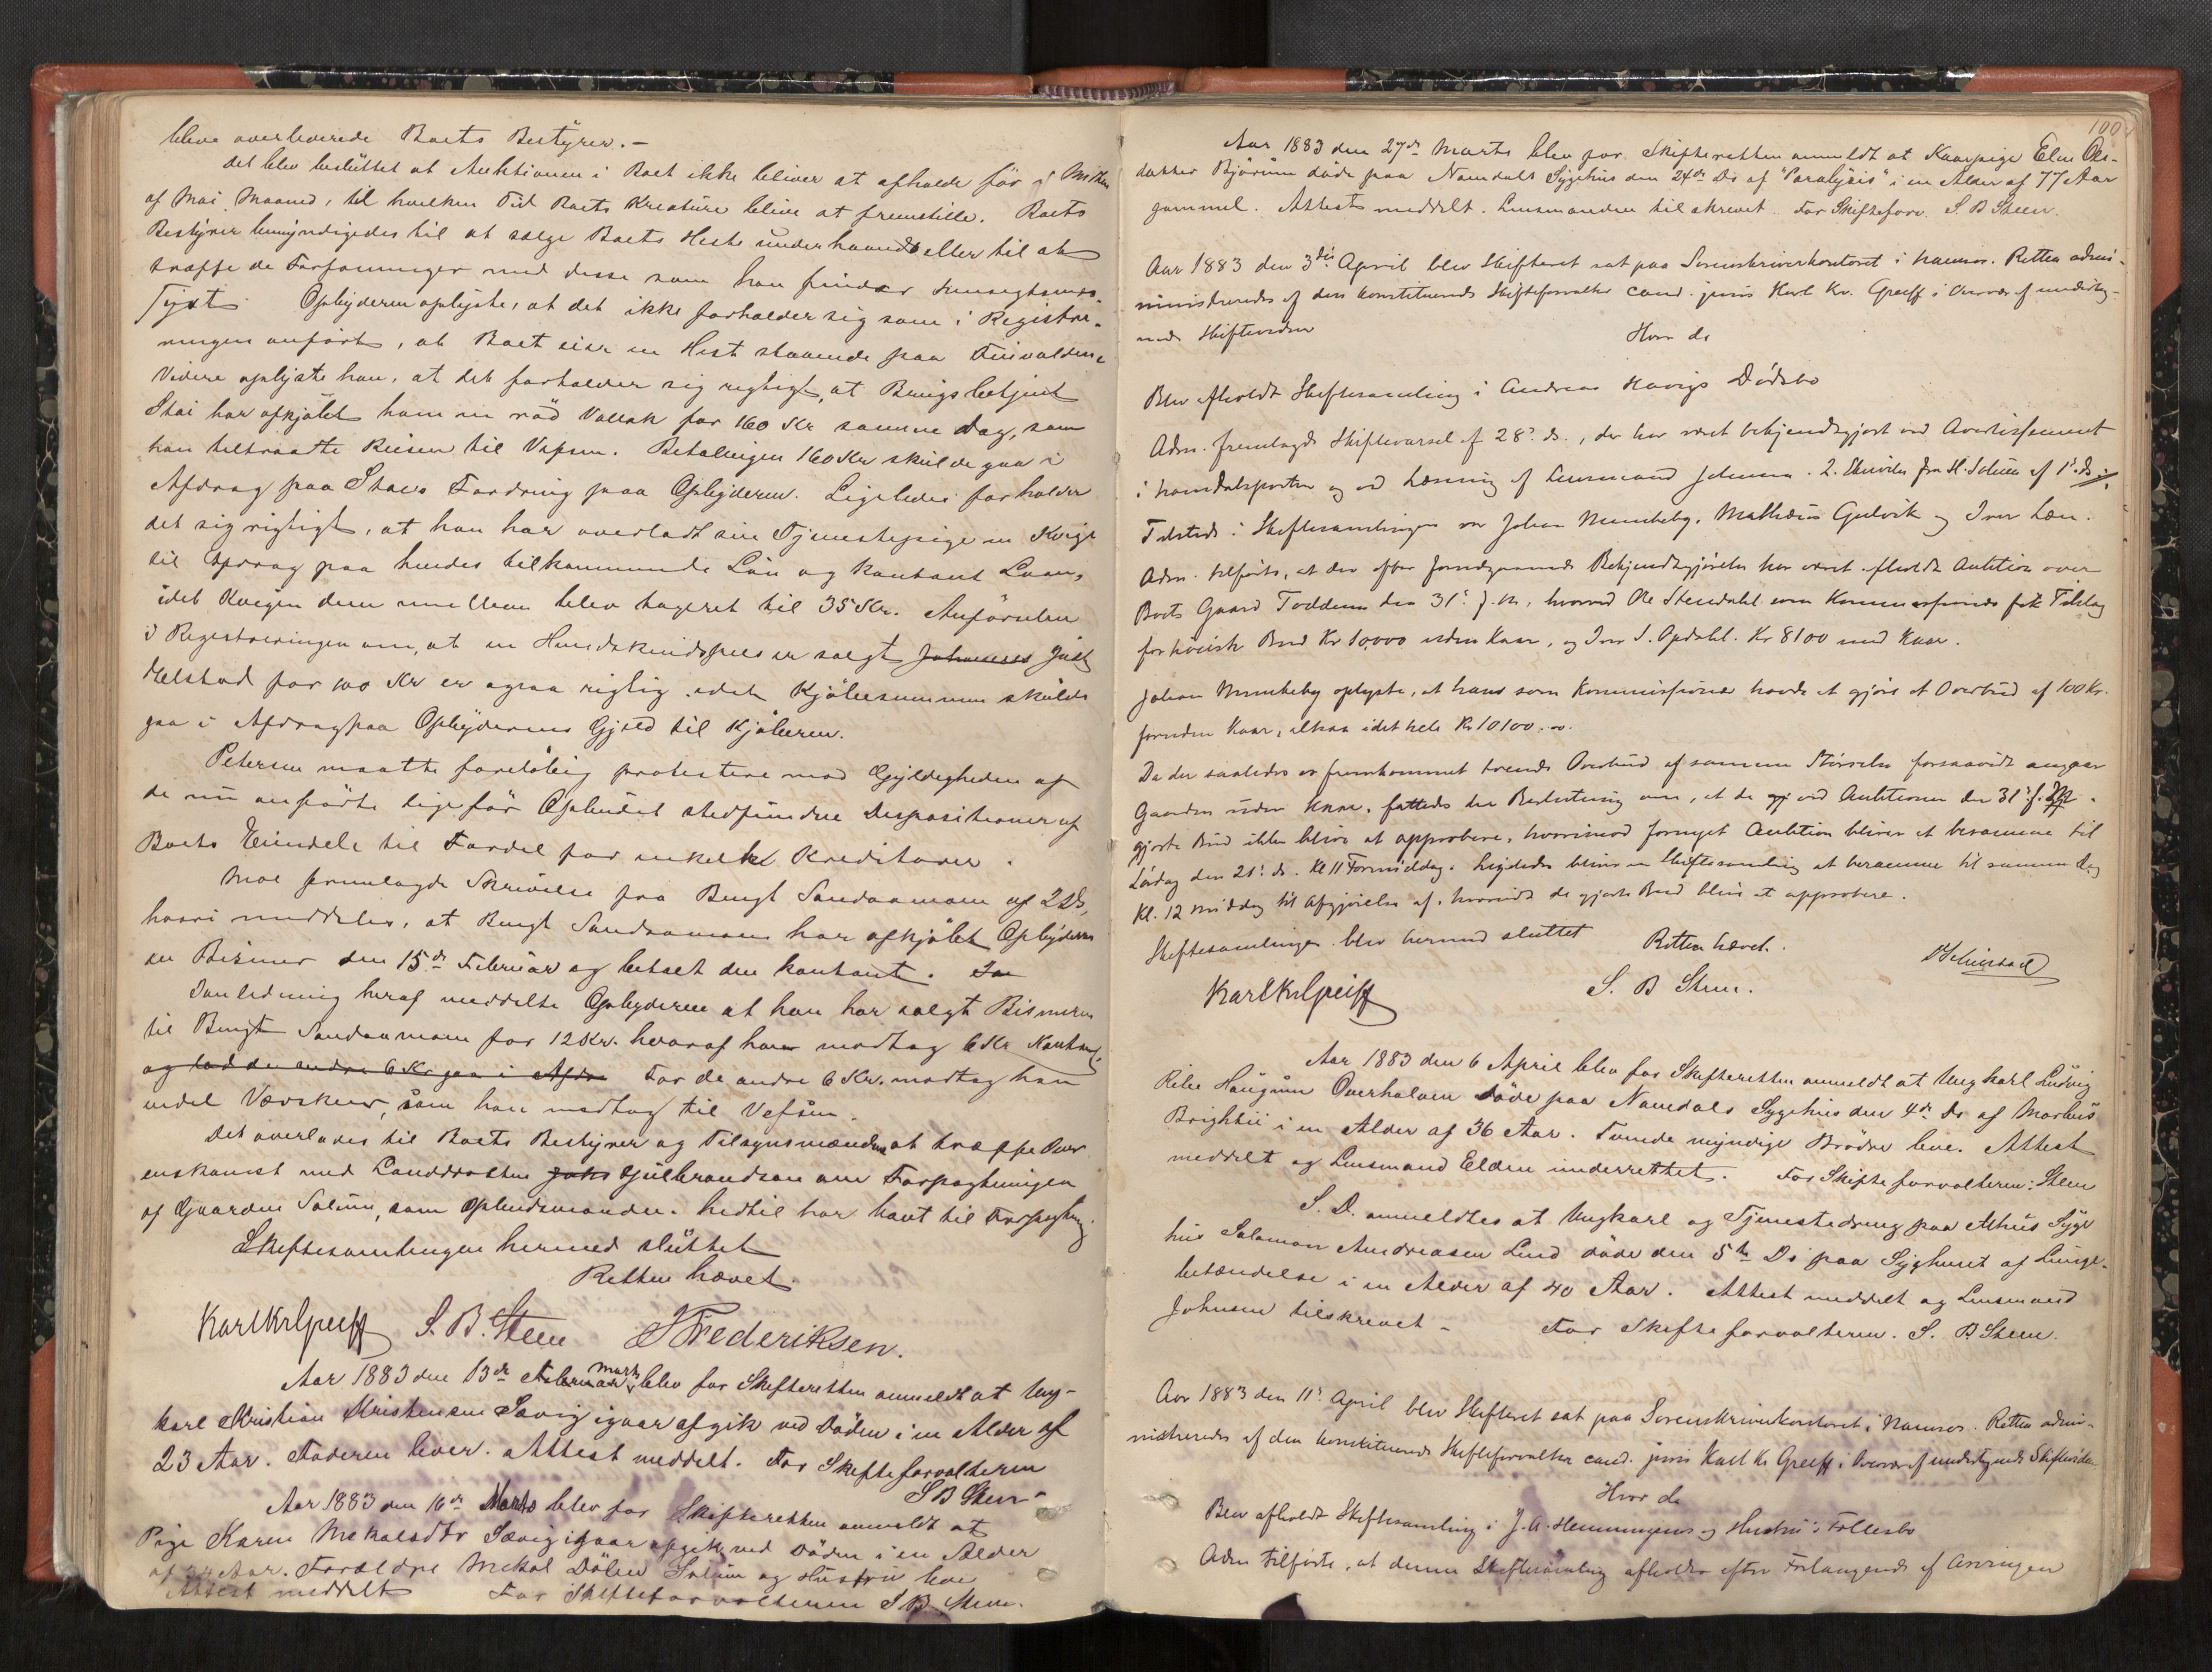 bleve overleverede Boets Bestyrer. –
Det blev besluttet at Auktionen i Boet ikke bliver at afholde før i Midten
af Mai Maaned, til hvilken Tid Boets Kreature bliver at fremstille. Boets
Bestyrer bemyndigedes til at sælge Boets Heste underhaanden eller til at
træffe de Forføininger med disse som han finder hensigtsmæs-
sigst. Opbyderen oplyste, at det ikke forholder sig som i Registre-
ringen anført, at Boet eier en Hest staaende paa
Videre oplyste han, at det forholder sig rigtigt, at Brugsbetjent
Stai har afkjøbt ham en rød Vallak for 160 Kr samme Dag, som
han tiltraadte Reisen til Vefsen. Betalingen 160 Kr skulde gaa i
Afdrag paa Stais Fordring paa Opbyderen. Ligeledes forholder
det sig rigtigt, at han har overladt sin Tjenestepige en Kvige
til Afdrag paa hendes tilkommende Løn og kontant Laan,
idet Kvigen dem imellem blev taxeret til 35 Kr. Anførselen
i Registreringen om, at en Hundskindspels er solgt Johannes
Helstad for 100 Kr er ogsaa rigtig idet Kjøbesummen skulde
gaa i Afdrag paa Opbyderens Gjeld til Kjøberen.
Petersen maatte foreløbig protestere mod Gyldigheden af
de nu anførte lige før Opbudet stedfundne Dispositioner af
Boets Eiendele til Fordel for enkelte Kreditorer.
Moe fremlagde Skrivelse fra Bengt Sandaamoen af 2 Ds,
hvori meddeles, at Bengt Sandaamoen har afkjøbt Opbyderen
en Bismer den 15de Februar og betalt den kontant.
I anledning heraf meddelte Opbyderen at han har solgt Bismeren
til Bengt Sandaamoen for 12 Kr. hvoraf han modtog 6 Kr Kontant
og lod de andre 6 Kr gaa i Afdra For de andre 6 Kr. modtog han
endel Varer, som han medtog til Vefsen.
Det overlodes til Boets Bestyrer og Tilsynsmænden at træffe Over
enskomst med Landdrosten Gulbrandsen om Forpagtningen
af Gaarden Solum, som Opbudsmanden hidtil har havt til Forpagtning
Skiftesamlingen hermed sluttet
Retten hævet.
Karl Kr Greiff S. B. Steen J Frederiksen.
Aar 1883 den 13de Februar Marts blev for Skifteretten anmeldt at Ung-
karl Kristian Kristensen Sævig igaar afgik ved Døden i en Alder af
23 Aar. Faderen lever. Attest meddelt. For Skifteforvalteren
S B Steen
Aar 1883 den 16de Marts blev for Skifteretten anmeldt at
Pige Karen Mekalsdtr Sævig igaar afgik ved Døden i en Alder
af Aar. Forældre Mekal Dølen Solum og Hustru leve
Attest meddelt For Skifteforvalteren S B Steen.
100
Aar 1883 den 27de Marts blev for Skifteretten anmeldt at Kaarpige Elen Ols-
datter Bjørum døde paa Namdals Sygehus den 24de Ds af "Paralysis" i en Alder af 77 Aar
gammel. Attest meddelt. Lensmanden tilskrevet. For Skifteforv. S. B Steen.
Aar 1883 den 3die April blev Skifteret sat paa Sorenskriverkontoret i Namsos. Retten admi-
ministreredes af den konstituerede Skifteforvalter cand. juris Karl Kr. Greiff i Overvær af underteg-
nede Skiftevidner
Hvor da
Blev afholdt Skiftesamling i Andreas Havigs Dødsbo
Adm. fremlagde Skiftevarsel af 28. ds., der har været bekjendtgjort ved Avertissement
i Namdalsposten og ved Læsning af Lensmand Johnsen. 2. Skrivelse fra H. Solum af 1. ds.
Tilstede i Skiftesamlingen var Johan Mennheby, Mathæus Gulvik og Iver Lien.
Adm. tilførte, at der efter foregaaende Bekjendtgjørelse har været afholdt Auktion over
Boets Gaard Toddum den 31. f. M., hvorved Ole Stendahl som Kommissionær fik Tilslag
for høieste Bud Kr 10,000 uden Kaar, og Iver S. Opdahl. Kr 8100 med Kaar.
Johan Mennheby oplyste, at han som Kommissionær havde at gjøre et Overbud af 100 Kr.
foruden Kaar, altsaa i det hele Kr 10100.00.
Da der saaledes er fremkommet tvende Overbud af samme Størrelse forsaavidt angaar
Gaarden uden Kaar, fattedes den Beslutning om, at de ved Auktionen den 31. f. M.
gjorte Bud ikke bliver at approbere, hvorimod fornyet Auktion bliver at berammes til
Lørdag den 21. ds. Kl 11 Formiddag. Ligeledes bliver en Skiftesamling at beramme til samme Dag
Kl. 12 Middag til Afgjørelse af, hvorvidt de gjorte Bud bliver at approbere.
Skiftesamlingen blev hermed sluttet Retten hævet.
Karl Kr Greiff S. B Steen.
Aar 1883 den 6 April blev for Skifteretten anmeldt at Ungkarl Ludvig
Ribe Haugum Overhalven døde paa Namdals Sygehus den 4de Ds af Morbus
Brightii i en Alder af 36 Aar. Tvende myndige Brødre leve. Attest
meddelt og Lensmand Elden underrettet. For Skifteforvalteren: Steen
S. D. anmeldtes at Ungkarl og Tjenestedreng paa Athus Syge
hus Salamon Andreasen Lund døde den 5te Ds paa Sygehuset af Lunge-
betændelse i en Alder af 40 Aar. Attest meddelt og Lensmand
Johnsen tilskrevet – For Skifteforvalteren. S. B. Steen.
Aar 1883 den 11. April blev Skifteret sat paa Sorenskriverkontoret i Namsos. Retten admi-
nistreredes af den konstituerede Skifteforvalter cand. juris Karl Kr Greiff i Overvær af undertegnede Skiftevidner
Hvor da
Blev afholdt Skiftesamling i J. A. Hemmingsens og Hustru's Fællesbo
Adm tilførte, at denne Skiftesamling afholdes efter Forlangende af Arvingen